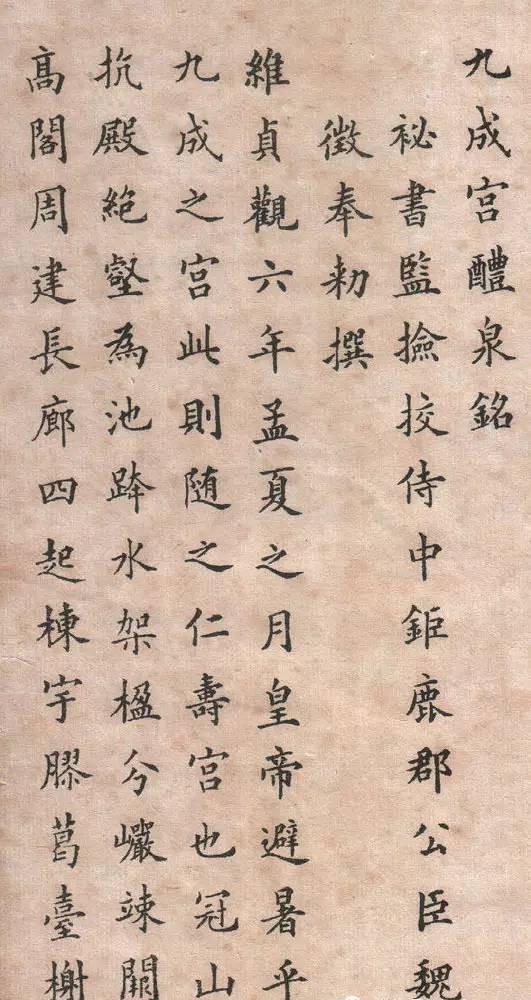 九成宮醴泉銘
祕書監撿挍侍中鉅鹿郡公臣魏
徵奉勑撰
維貞觀六年孟夏之月皇帝避暑乎
九成之宮此則随之仁壽宮也冠山
抗殿絶壑為池跨水架楹分巗竦闕
髙閣周建長廊四起棟宇膠葛臺榭